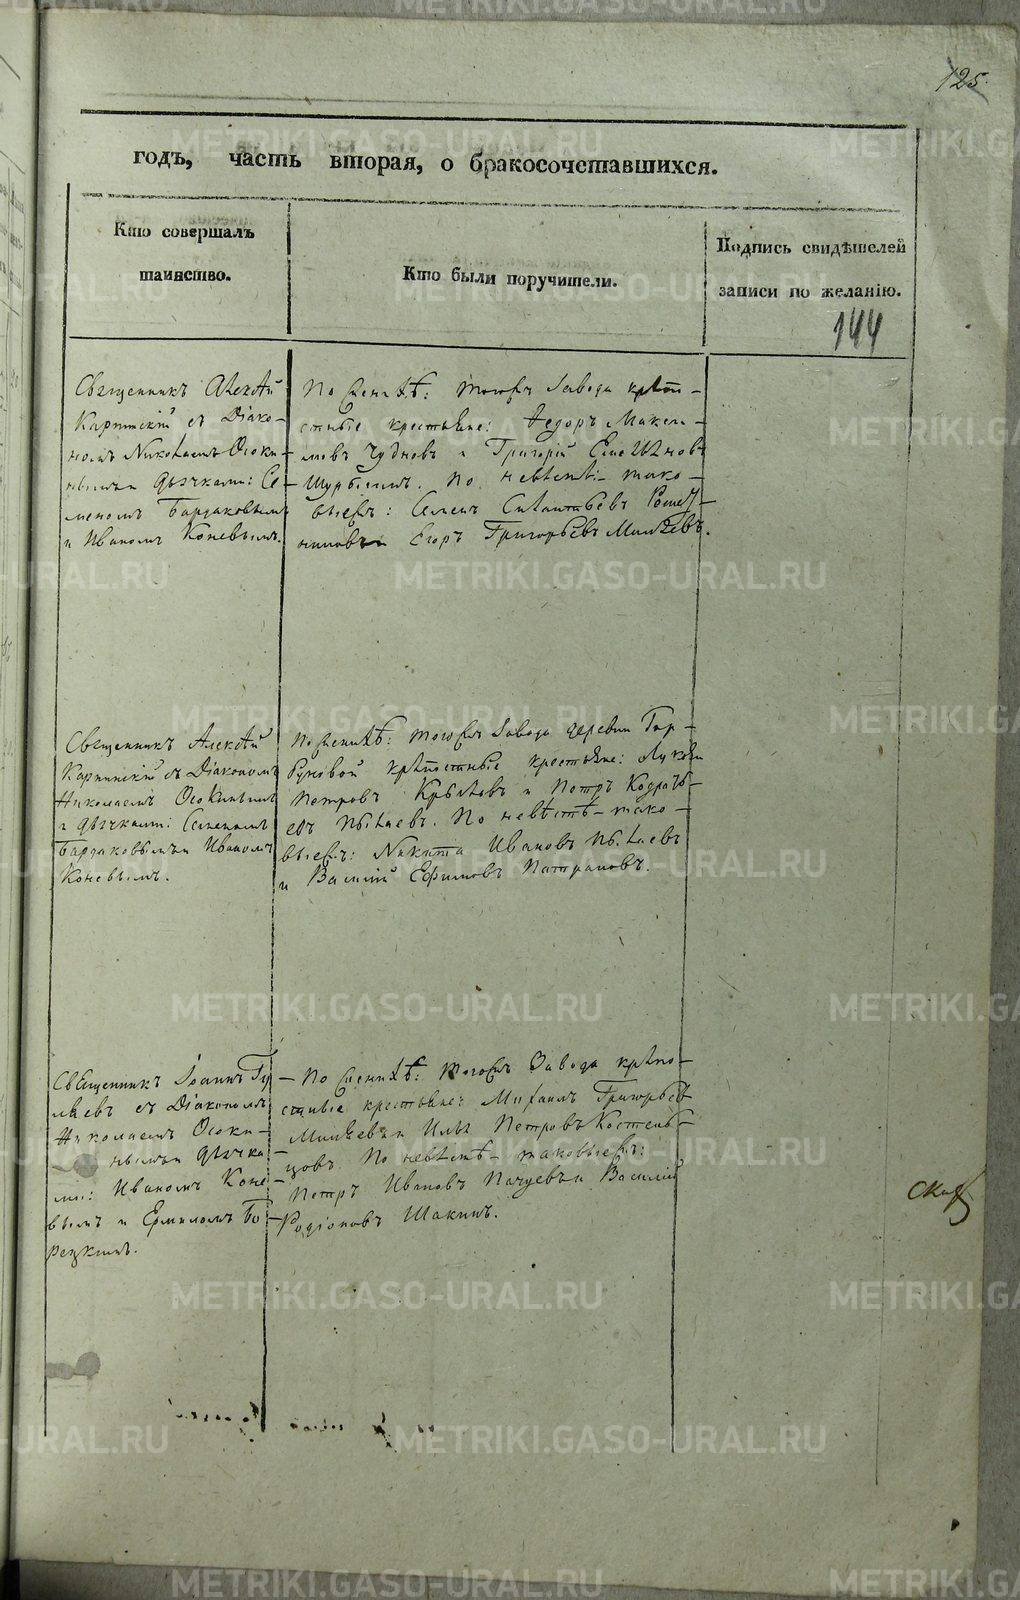 125.
годъ, часть вторая, о бракосочетавшихся.
Кто совершалъ
таинство.
Кто были поручители.
Подпись свидѣтелей
записи по желанію.
144
Священникъ Алексѣй
Карпинскій съ Діако-
номъ Николаемъ Осоки-
нымъ и дьячками: Се-
меномъ Бардаковымъ
и Иваномъ Коневымъ.
По женихѣ: тогожъ Завода крѣпо-
стные крестьяне: Ѳедоръ Макси-
мовъ Чудновъ и Григорій
По невѣстѣ- тако-
выежъ: Семенъ
Егоръ Григорьевъ
Священникъ Алексѣй
Карпинскій съ Діакономъ
Николаемъ Осокинымъ
и дьячками: Семеномъ
Бардаковымъ и Иваномъ
Коневымъ.
По женихѣ: тогожъ Завода деревни Гор-
буновой крѣпостные крестьяне:
Петровъ Крыловъ и Петръ
По невѣстѣ- тако-
выежъ: Никита Ивановъ
и Василій Ефимовъ
Священникъ Іоаннъ
съ Діакономъ
Николаемъ Осоки-
нымъ и дьячка-
ми: Иваномъ Коне-
вымъ и Ермиломъ Бо-
рецкимъ.
- По женихѣ: тогожъ Завода крѣпо-
стные крестьяне: Михаилъ Григорьевъ
и Илья Петровъ Костень-
цовъ По невѣстѣ- таковыежъ:
Петръ Ивановъ и Василій
Родіоновъ Шакинъ.
METRIKI.GASO-URAL.RU